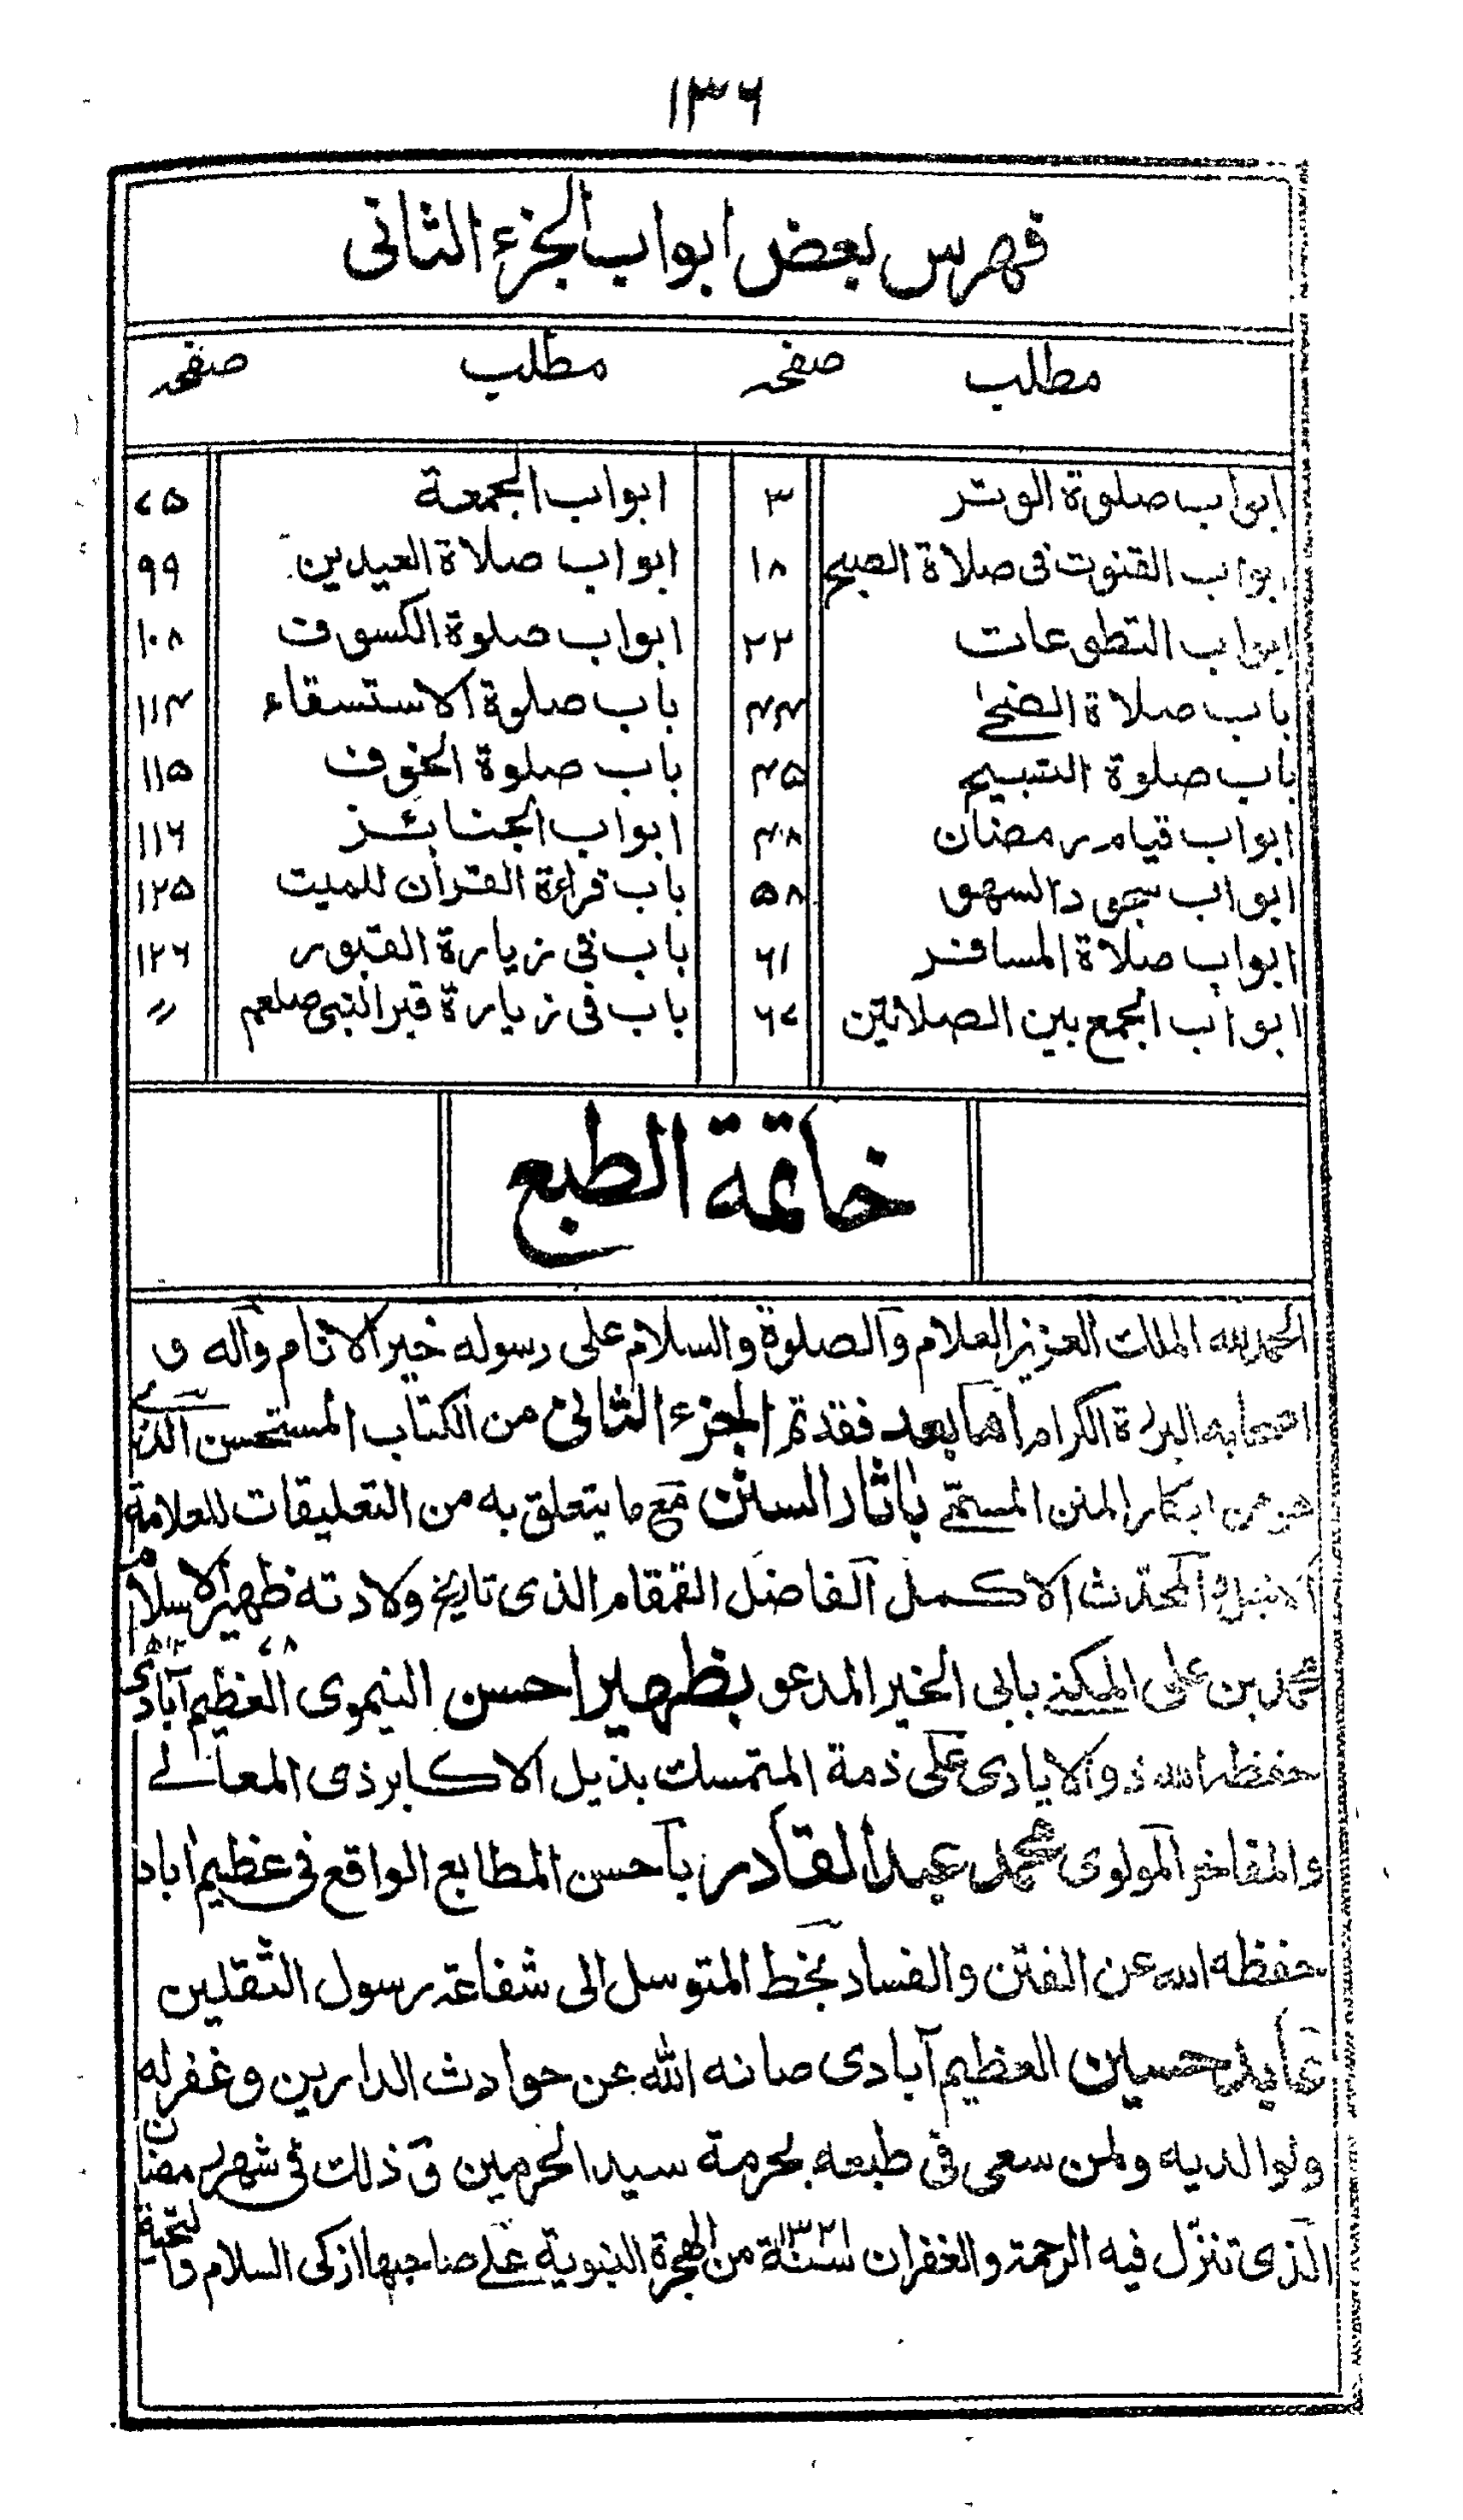 ۱۳۶
فهرس بعض ابواب الجزء الثانی
مطلب صفحہ مطلب صفحہ
ابواب صلوة الوتر ۳ ابواب الجمعة ۷۵
ابواب القنوت فی صلاة الصبح ۱۸ ابواب صلاة العیدین ۹۹
ابواب التطوعات ۲۲ ابواب صلوة الکسوف ۱۰۸
باب صلاة الضحی ۴۴ باب صلوة الاستسقاء ۱۱۴
باب صلوة التسبیح ۴۵ باب صلوة الخوف ۱۱۵
ابواب قیام رمضان ۴۸ ابواب الجنائز ۱۱۶
ابواب سجود السهو ۵۸ باب قراءة القران للمیت ۱۲۵
ابواب صلاة المسافر ۶۱ باب فی زیارة القبور ۱۲۶
ابواب الجمع بین الصلاتین ۶۷ باب فی زیارة قبر النبی صلعم ״
خاتمة الطبع
الحمد لله الملک العزیز العلام والصلوة والسلام علی رسوله خیر الانام وآله و
اصحابه البررة الکرام اما بعد فقد تم الجزء الثانی من الکتاب المستحسن الذی
هو من ابکار المنن المسمی باثار السنن مع ما یتعلق به من التعلیقات للعلامة
المحدّث الاکمل الفاضل القمقام الذی تاریخ ولادته ظهیر الاسلام
محمد بن علی المکنی بابی الخیر المدعو بظهیر احسن النیموی العظیم آبادی
حفظه الله ذو الایادی علی ذمة المتمسک بذیل الاکابر ذی المعالی
والمفاخر المولوی محمد عبد القادر باحسن المطابع الواقع فی عظیم اباد
حفظه الله عن الفتن والفساد بخط المتوسل الی شفاعة رسول الثقلین
حسین العظیم آبادی صانه الله عن حوادث الدارین وغفر له
ولوالدیه ولمن سعی فی طبعه بحرمة سید الحرمین و ذلک فی شهر رمضان
الذی تنزّل فیه الرحمة والغفران سنة ۱۳۲۱ من الهجرة النبویة علی صاحبها ازکی السلام والتحیة